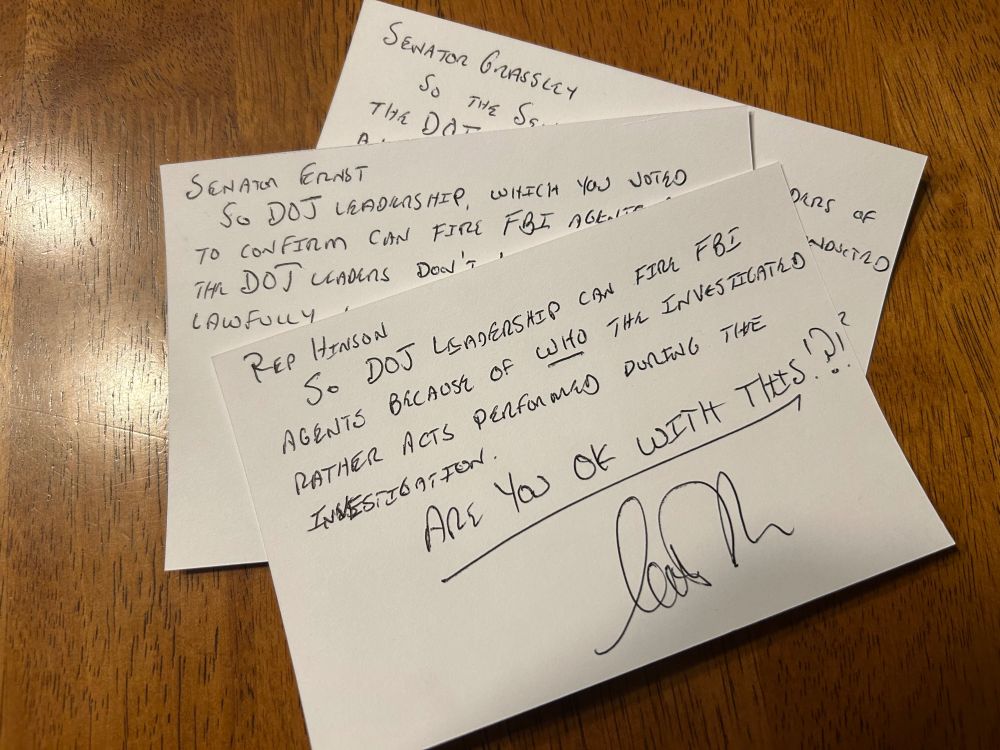 SENATOR GRASSLEY
SO THE
THE DOJ
DERS OF
SENATOR ERNST
SO DOJ LEADERSHIP, WHICH YOU VOTED
TO CONFIRM CAN FIRE FBI AGENTS
THE DOJ LEADERS DON'T
LAWFULLY
REP HINSON
SO DOJ LEADERSHIP CAN FIRE FBI
AGENTS BECAUSE OF WHO THE INVESTIGATED
RATHER ACTS PERFORMED DURING THE
INVESTIGATION.
ARE YOU OK WITH THIS!?!?